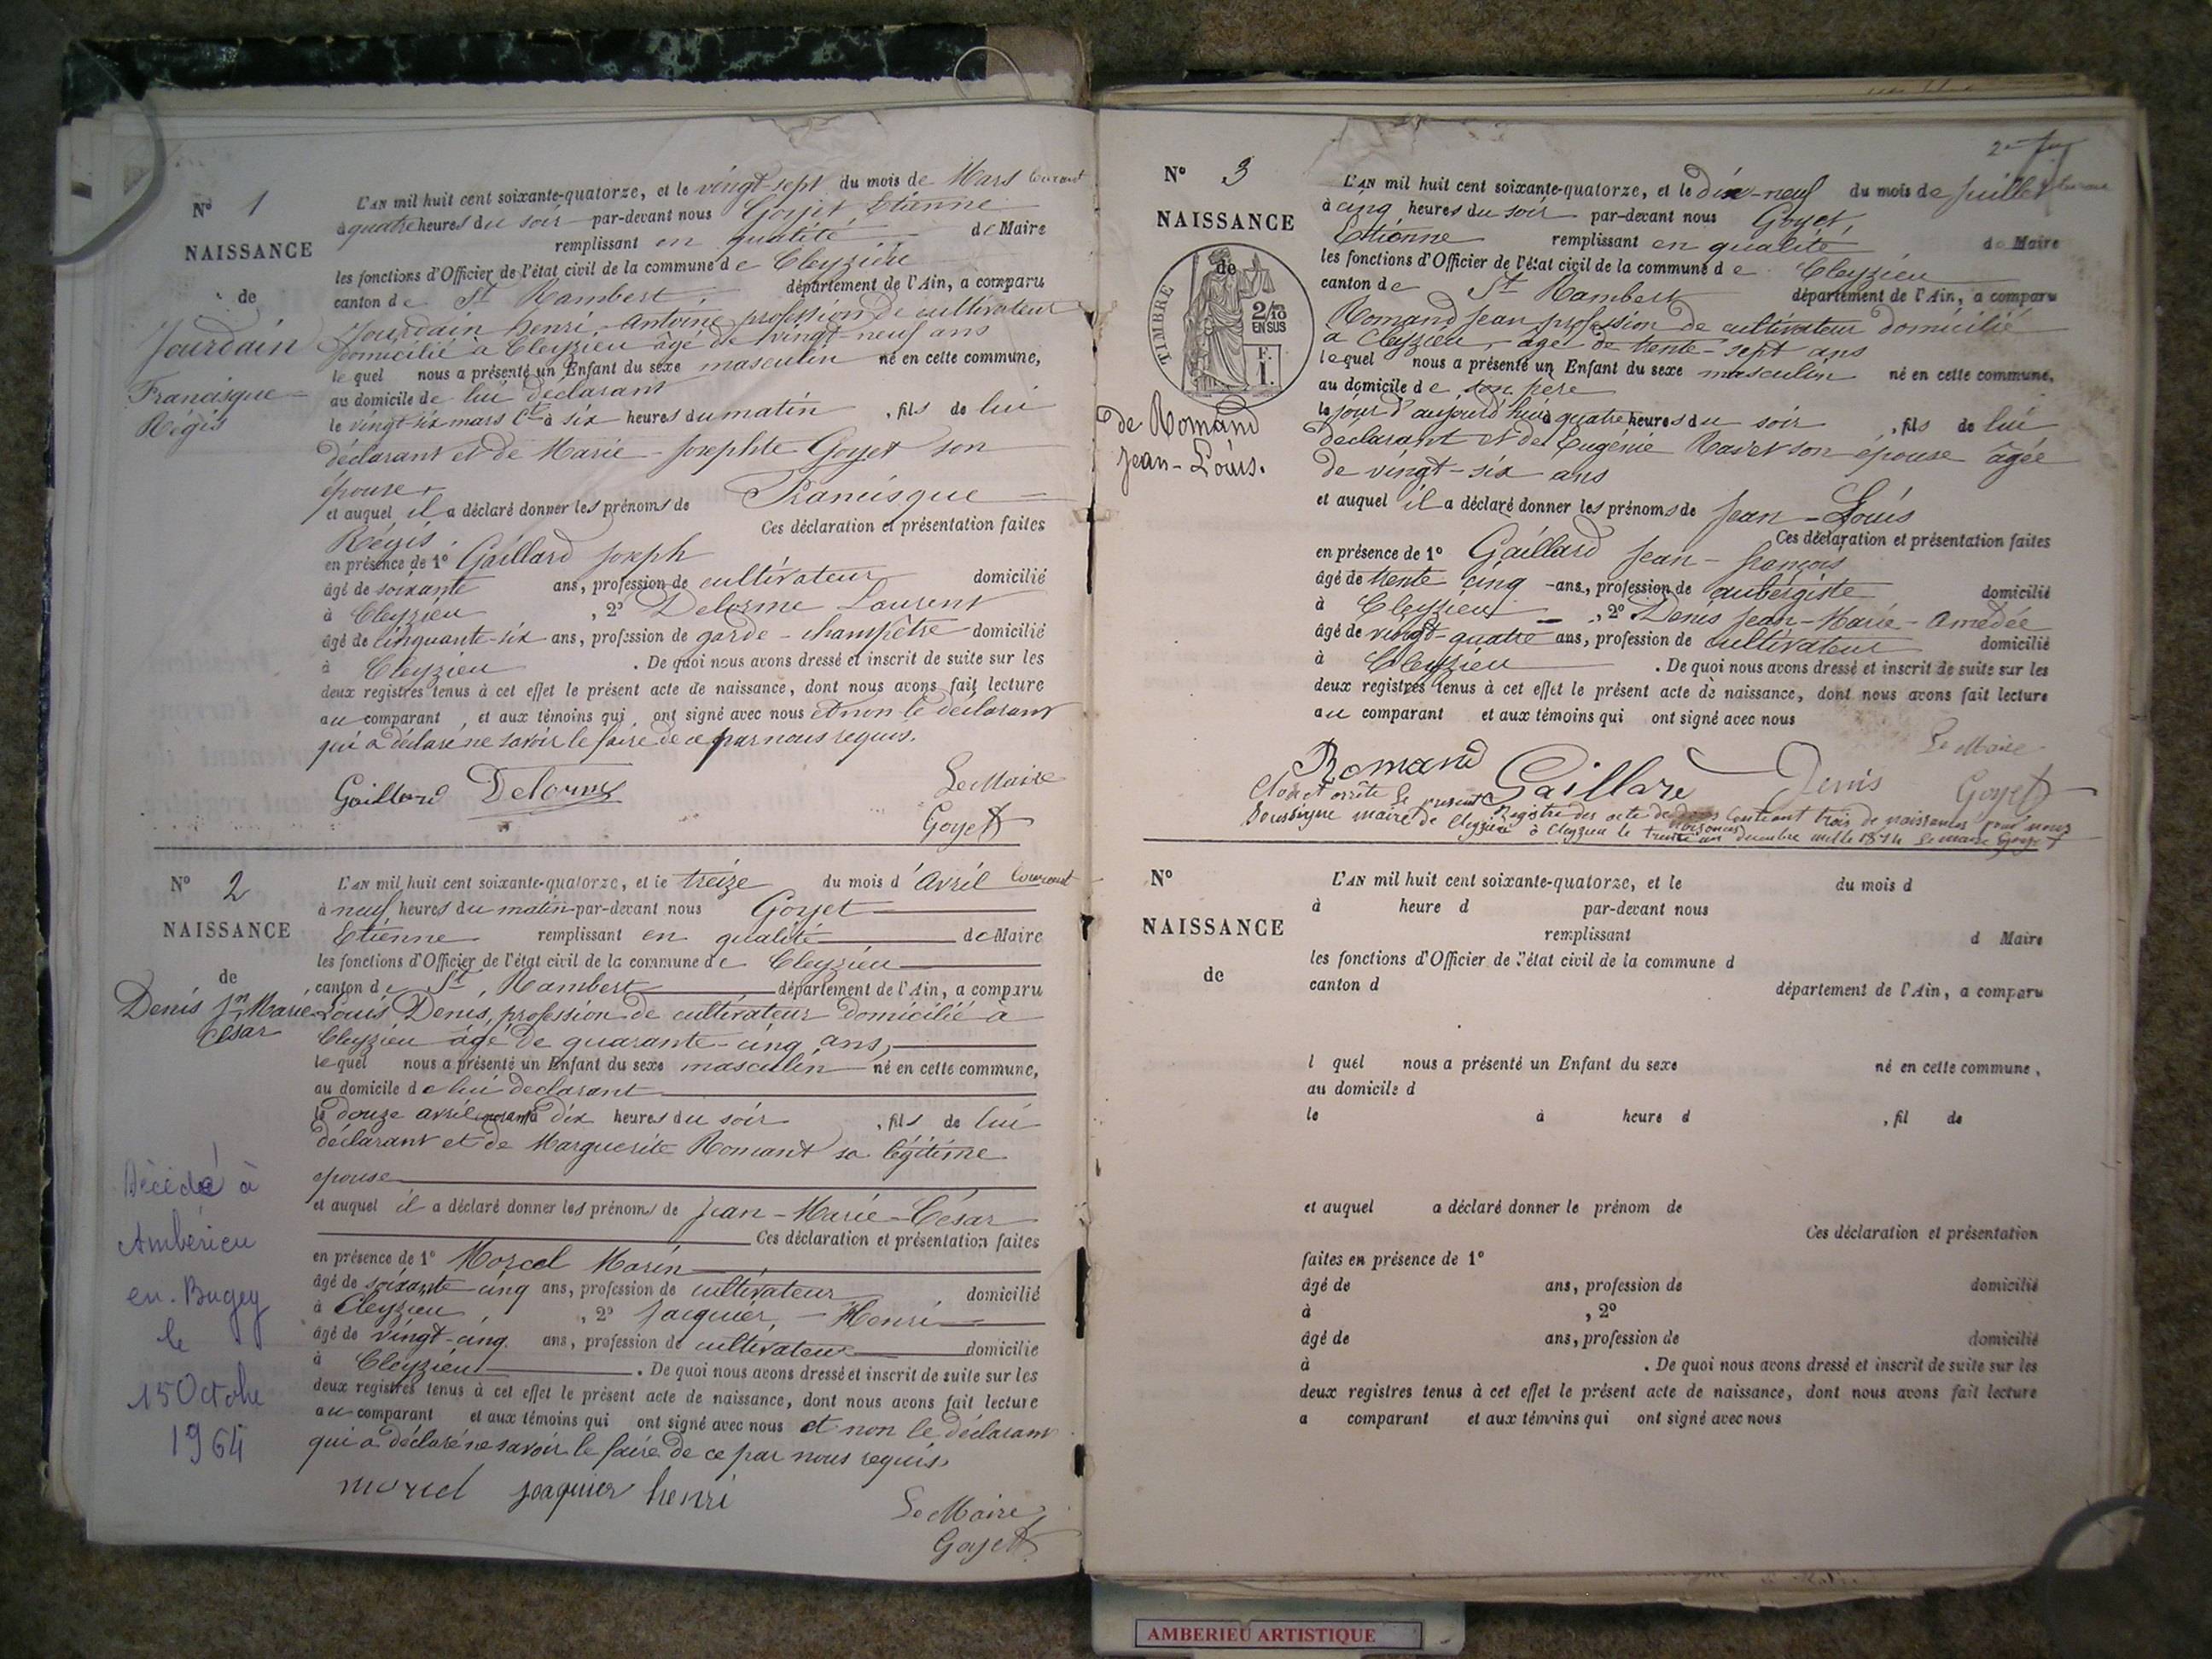 N° 1
NAISSANCE
de
Jourdain
Francisque-
Régis
L'AN mil huit cent soixante-quatorze, et le vingt-sept du mois de Mars courant
à quatre heures du soir par-devant nous Goyet, Etienne
remplissant en qualité de Maire
les fonctions d'Officier de l'état civil de la commune de Cleyzieu
canton de St Rambert, département de l'Ain, a comparu
Jourdain henri-Antoine profession de cultivateur
domicilié à Cleyzieu âgé de vingt-neuf ans
lequel nous a présenté un Enfant du sexe masculin né en cette commune,
au domicile de lui déclarant
le vingt-six mars Ct à six heures du matin, fils de lui
déclarant et de Marie-Josephte Goyet son
épouse
et auquel il a déclaré donner les prénoms de Francisque =
Régis. Ces déclaration et présentation faites
en présence de 1° Gaillard Joseph
âgé de soixante ans, profession de cultivateur domicilié
à Cleyzieu, 2° Delorme Laurent
âgé de cinquante-six ans, profession de garde-champêtre domicilié
à Cleyzieu. De quoi nous avons dressé et inscrit de suite sur les
deux registres tenus à cet effet le présent acte de naissance, dont nous avons fait lecture
au comparant, et aux témoins qui ont signé avec nous et non le déclarant
qui a déclaré ne savoir le faire de ce par nous requis.
Gaillard Delorme Le Maire
Goyet
N° 2
NAISSANCE
de
Denis Jn Marie
César
L'AN mil huit cent soixante-quatorze, et le treize du mois d'Avril courant
à neuf heures du matin par-devant nous Goyet
Etienne remplissant en qualité de Maire
les fonctions d'Officier de l'état civil de la commune de Cleyzieu
canton de St Rambert département de l'Ain, a comparu
Louis Denis, profession de cultivateur domicilié à
Cleyzieu âgé de quarante-cinq ans,
lequel nous a présenté un Enfant du sexe masculin né en cette commune,
au domicile de lui déclarant
le douze avril courant à dix heures du soir, fils de lui
déclarant et de Marguerite Romant sa légitime
épouse
et auquel il a déclaré donner les prénoms de Jean-Marie-César
Ces déclaration et présentation faites
en présence de 1° Morcel Marin
âgé de soixante cinq ans, profession de cultivateur domicilié
à Cleyzieu, 2° Jacquier, - Henri
âgé de vingt-cinq ans, profession de cultivateur domicilié
à Cleyzieu. De quoi nous avons dressé et inscrit de suite sur les
deux registres tenus à cet effet le présent acte de naissance, dont nous avons fait lecture
au comparant et aux témoins qui ont signé avec nous et non le déclarant
qui a déclaré ne savoir le faire de ce par nous requis
morcel jeaquier henri
Le Maire
Goyet
Décédé à
Ambérieu
en-Bugey
le
15 Octobre
1964
N° 3
NAISSANCE
de
TIMBRE
2/10
EN SUS
F.
I.
de Romand
Jean-Louis.
L'AN mil huit cent soixante-quatorze, et le dix-neuf du mois de Juillet
à cinq heures du soir par-devant nous Goyet,
Etienne remplissant en qualité de Maire
les fonctions d'Officier de l'état civil de la commune de Cleyzieu
canton de St Rambert département de l'Ain, a comparu
Romand Jean profession de cultivateur domicilié
à Cleyzieu, âgé de trente-sept ans
lequel nous a présenté un Enfant du sexe masculin né en cette commune,
au domicile de son père
le jour d'aujourd'hui à quatre heures du soir, fils de lui
déclarant et de Eugénie Ravet son épouse âgée
de vingt-six ans
et auquel il a déclaré donner les prénoms de Jean-Louis
Ces déclaration et présentation faites
en présence de 1° Gaillard Jean-françois
âgé de trente cinq ans, profession de aubergiste domicilié
à Cleyzieu, 2° Denis Jean-Marie-Amedée
âgé de vingt-quatre ans, profession de cultivateur domicilié
à Cleyzieu. De quoi nous avons dressé et inscrit de suite sur les
deux registres tenus à cet effet le présent acte de naissance, dont nous avons fait lecture
au comparant et aux témoins qui ont signé avec nous
Le Maire
Romand Gaillard Denis Goyet
Clos et arrêté le present Registre des acte de naissances contenant trois de naissances par nous
Soussigné maire de Cleyzieu à Cleyzieu le trente un decembre mille 1874 Le maire Goyet
N°
NAISSANCE
de
L'AN mil huit cent soixante-quatorze, et le du mois d
à heure d par-devant nous
remplissant d Maire
les fonctions d'Officier de l'état civil de la commune d
canton d département de l'Ain, a comparu
l quel nous a présenté un Enfant du sexe né en cette commune,
au domicile d
le à heure d, fil de
et auquel a déclaré donner le prénom de
Ces déclaration et présentation
faites en présence de 1°
âgé de ans, profession de domicilié
à, 2°
âgé de ans, profession de domicilié
à. De quoi nous avons dressé et inscrit de suite sur les
deux registres tenus à cet effet le présent acte de naissance, dont nous avons fait lecture
a comparant et aux témoins qui ont signé avec nous
AMBERIEU ARTISTIQUE